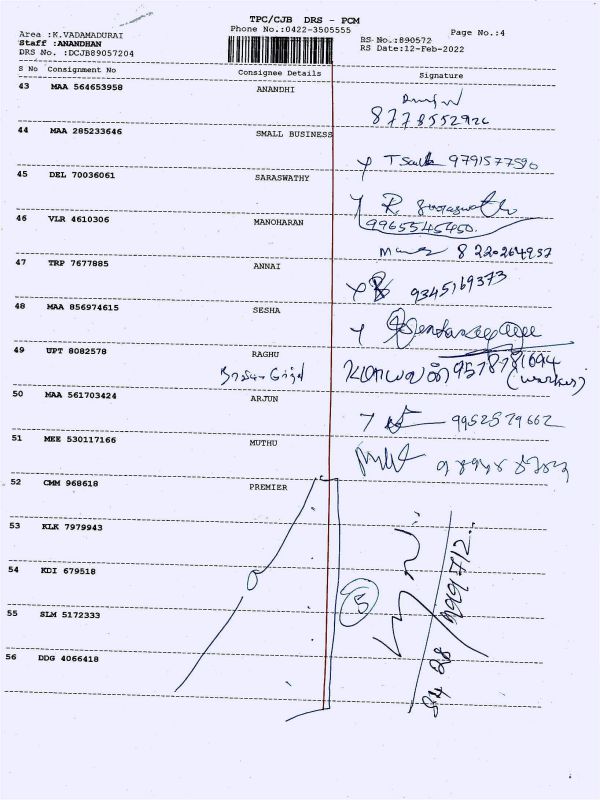 TPC/CJB DRS - PCM
Phone No.:0422-3505555
Page No.:4
Area :K.VADAMADURAI
Staff :ANANDHAN
DRS No. :DCJB89057204
RS-No.:890572
RS Date:12-Feb-2022
S No Consignment No Consignee Details Signature
43 MAA 564653958 ANANDHI
8778552926
44 MAA 285233646 SMALL BUSINESS
9791577590
45 DEL 70036061 SARASWATHY
R
9965545450.
46 VLR 4610306 MANOHARAN
8220264957
47 TRP 7677885 ANNAI
9345169373
48 MAA 856974615 SESHA
49 UPT 8082578 RAGHU
9578781694
(worker)
50 MAA 561703424 ARJUN
9952579662
51 MEE 530117166 MUTHU
52 CMM 968618 PREMIER
53 KLK 7979943
54 KDI 679518
5
55 SLM 5172333
56 DDG 4066418